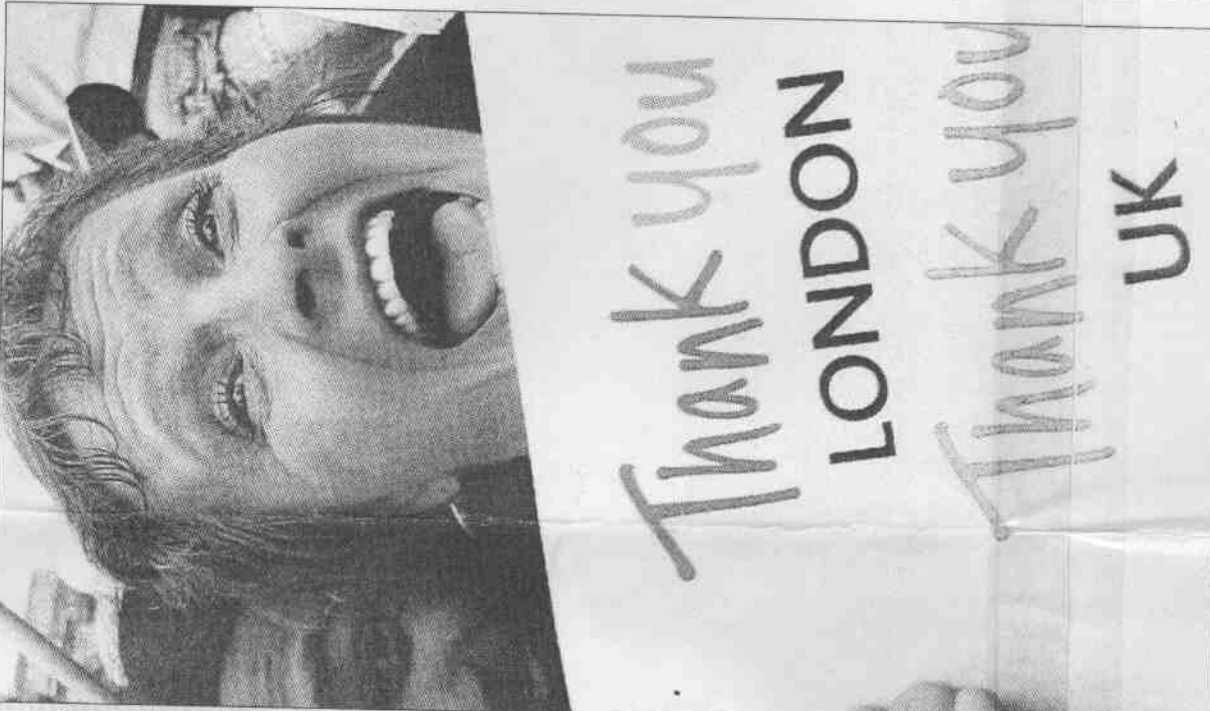 Thank you
LONDON
Thank you
UK